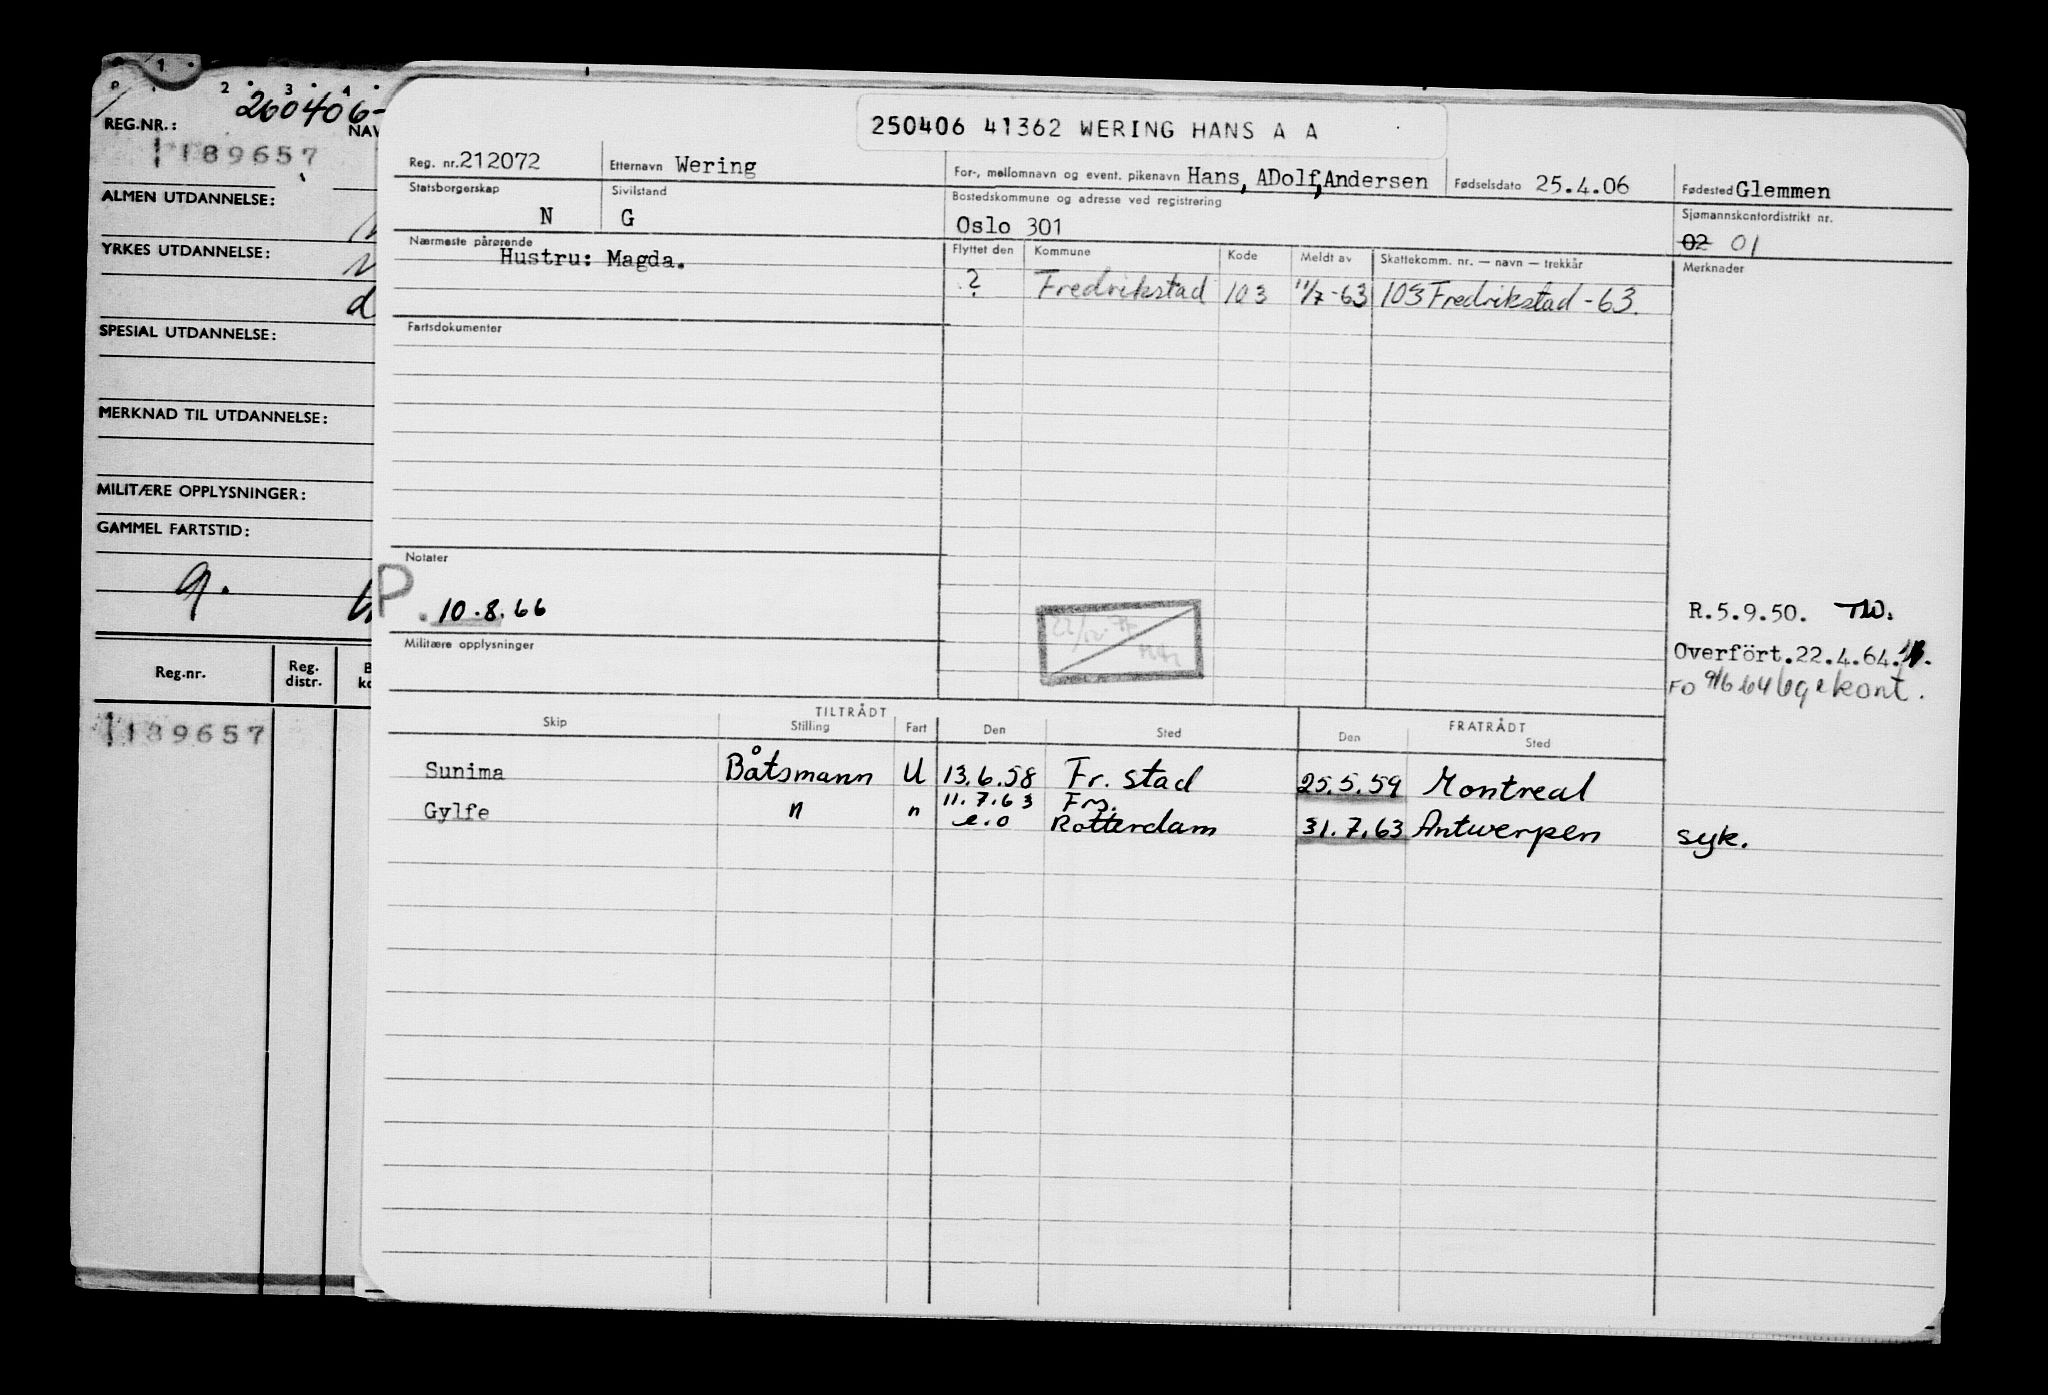 260406-
REG.NR.:
189657
ALMEN UTDANNELSE:
YRKES UTDANNELSE:
SPESIAL UTDANNELSE:
MERKNAD TIL UTDANNELSE:
MILITÆRE OPPLYSNINGER:
GAMMEL FARTSTID:
Reg.nr. Reg. distr.
189657
250406 41362 WERING HANS A A
Reg. nr. 212072 Etternavn Wering For-, mellomnavn og event. pikenavn Hans, ADolf, Andersen Fødselsdato 25.4.06 Fødested Glemmen
Statsborgerskap N Sivilstand G Bostedskommune og adresse ved registrering Oslo 301 Sjømannskontordistrikt nr. 02 01
Nærmeste pårørende Hustru: Magda.
Flyttet den Kommune Kode Meldt av Skattekomm. nr. — navn — trekkår Merknader
? Fredrikstad 103 11/7-63 103 Fredrikstad-63.
Fartsdokumenter
Notater
P. 10.8.66
Militære opplysninger
R.5.9.50. TW.
Overfört.22.4.64.
FO 9/6 64
TILTRÅDT FRATRÅDT
Skip Stilling Fart Den Sted Den Sted
Sunima Båtsmann U 13.6.58 Fr.stad 25.5.59 Montreal
Gylfe " " 11.7.63 Frs.
e.o Rotterdam 31.7.63 Antwerpen syk.